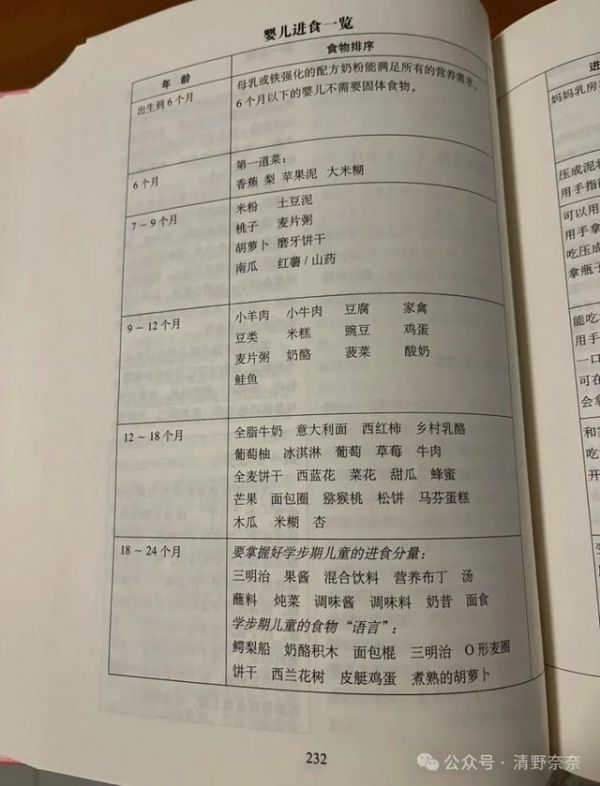 婴儿进食一览
年 龄 食物排序
出生到6个月 母乳或铁强化的配方奶粉能满足所有的营养需求，
6个月以下的婴儿不需要固体食物。
第一道菜：
6个月 香蕉 梨 苹果泥 大米糊
7～9个月 米粉 土豆泥
桃子 麦片粥
胡萝卜 磨牙饼干
南瓜 红薯/山药
9～12个月 小羊肉 小牛肉 豆腐 家禽
豆类 米糕 豌豆 鸡蛋
麦片粥 奶酪 菠菜 酸奶
鲑鱼
12～18个月 全脂牛奶 意大利面 西红柿 乡村乳酪
葡萄柚 冰淇淋 葡萄 草莓 牛肉
全麦饼干 西蓝花 菜花 甜瓜 蜂蜜
芒果 面包圈 猕猴桃 松饼 马芬蛋糕
木瓜 米糊 杏
18～24个月 要掌握好学步期儿童的进食分量：
三明治 果酱 混合饮料 营养布丁 汤
蘸料 炖菜 调味酱 调味料 奶昔 面食
学步期儿童的食物“语言”：
鳄梨船 奶酪积木 面包棍 三明治 O形麦圈
饼干 西兰花树 皮艇鸡蛋 煮熟的胡萝卜
232
进
妈妈乳房
压成泥状
用手指
可以用
用手拿
吃压成
拿瓶子
能吃
用手
一口
可在
会拿
和
吃
开
公众号·清野奈奈